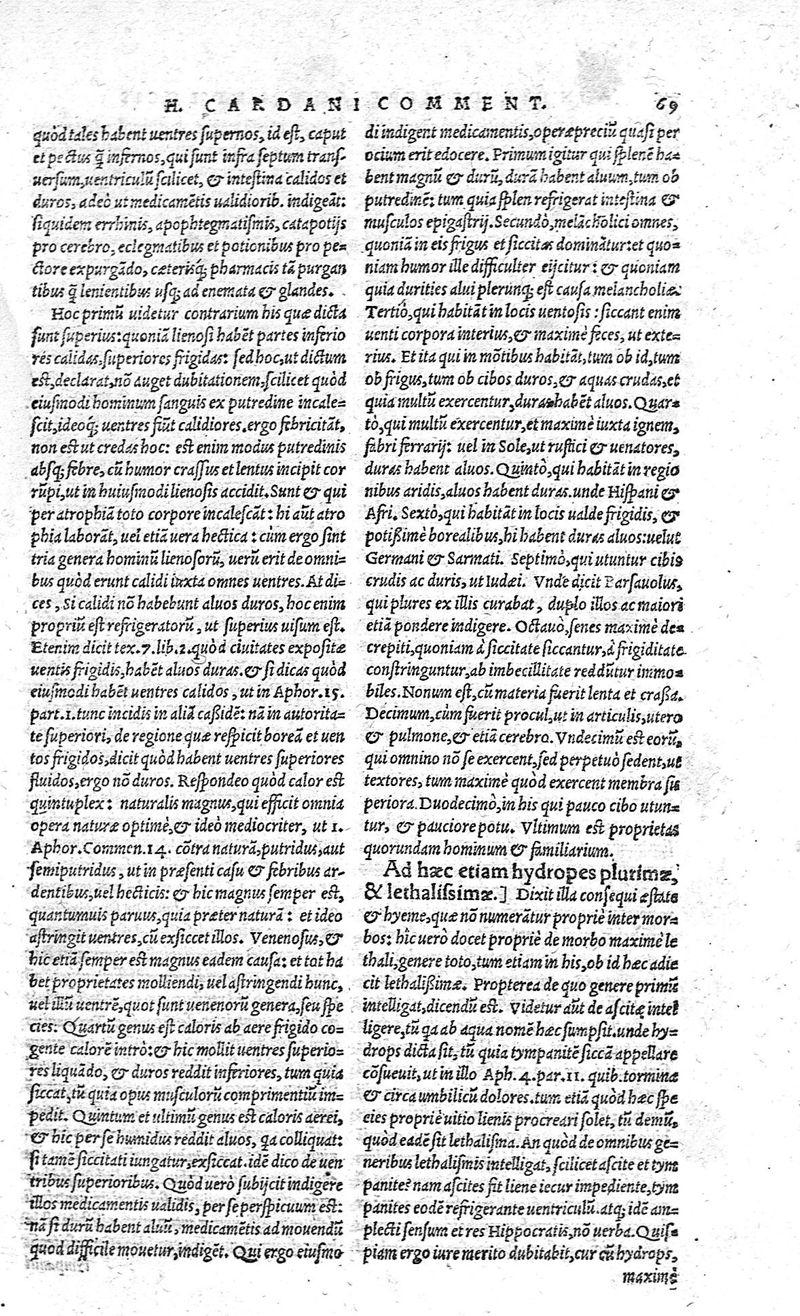 H. CARDANI COMMENT. 69
quòd tales habent uentres supernos, id est, caput
et pectus q̃ infernos, qui sunt infra septum transf-
uersum, uentriculũ scilicet, & intestina calidos et
duros, adeò ut medicamẽtis ualidiorib. indigeãt:
siquidem errhinis, apophtegmatismis, catapotijs
pro cerebro, eclegmatibus et potionibus pro pe=
ctore expurgãdo, cæterisq; pharmacis tã purgan
tibus q̃ lenientibus usq; ad enemata & glandes.
Hoc primũ uidetur contrarium his quæ dicta
sunt superius: quoniã lienosi habẽt partes inferio
res calidas, superiores frigidas: sed hoc, ut dictum
est, declarat, nõ auget dubitationem, scilicet quòd
eiusmodi hominum sanguis ex putredine incale=
scit, ideoq; uentres fiũt calidiores. ergo febricitãt,
non est ut credas hoc: est enim modus putredinis
absq; febre, cũ humor crassus et lentus incipit cor
rũpi, ut in huiusmodi lienosis accidit. Sunt & qui
per atrophiã toto corpore incalescãt: hi aũt atro
phia laborãt, uel etiã uera hectica: cùm ergo sint
tria genera hominũ lienosorũ, uerũ erit de omni=
bus quòd erunt calidi iuxta omnes uentres. At di=
ces, Si calidi nõ habebunt aluos duros, hoc enim
propriũ est refrigeratorũ, ut superius uisum est.
Etenim dicit tex. 7. lib. 2. quòd ciuitates expositæ
uentis frigidis, habẽt aluos duras. & si dicas quòd
eiusmodi habẽt uentres calidos, ut in Aphor. 15.
part. 1. tunc incidis in aliã caßidẽ: nã in autorita=
te superiori, de regione quæ respicit boreã et uen
tos frigidos, dicit quòd habent uentres superiores
fluidos, ergo nõ duros. Respondeo quòd calor est
quintuplex: naturalis magnus, qui efficit omnia
opera naturæ optimè, & ideò mediocriter, ut 1.
Aphor. Commen. 14. cõtra naturã, putridus, aut
semiputridus, ut in præsenti casu & febribus ar-
dentibus, uel hecticis: & hic magnus semper est,
quantumuis paruus, quia præter naturã: et ideo
astringit uentres, cũ exsiccet illos. Venenosus, &
hic etiã semper est magnus eadem causa: et tot ha
bet proprietates molliendi, uel astringendi hunc,
uel illũ uentrẽ, quot sunt uenenorũ genera, seu spe
cies. Quartũ genus est caloris ab aere frigido co=
gente calorẽ intrò: & hic mollit uentres superio=
res liquãdo, & duros reddit inferiores, tum quia
siccat, tũ quia opus musculorũ comprimentiũ im=
pedit. Quintum et ultimũ genus est caloris aerei,
& hic per se humidus reddit aluos, qa colliquat:
si tamẽ siccitati iungatur, exsiccat. idẽ dico de uen
tribus superioribus. Quòd uerò subijcit indigere
illos medicamentis ualidis, per se perspicuum est:
nã si durũ habent aluũ, medicamẽtis ad mouendũ
quòd difficile mouetur, indigẽt. Qui ergo eiusmo
di indigent medicamentis, operæpreciũ quasi per
ocium erit edocere. Primum igitur qui splenẽ ha=
bent magnũ & durũ, durã habent aluum, tum ob
putredinẽ: tum quia splen refrigerat intestina &
musculos epigastrij. Secundò, melãcholici omnes,
quoniã in eis frigus et siccitas dominãtur: et quo=
niam humor ille difficulter eijcitur: & quoniam
quia durities alui plerunq; est causa melancholiæ.
Tertiò, qui habitãt in locis uentosis: siccant enim
uenti corpora interius, & maximè feces, ut exte=
rius. Et ita qui in mõtibus habitãt, tum ob id, tum
ob frigus, tum ob cibos duros, & aquas crudas, et
quia multũ exercentur, duras habẽt aluos. Quar=
tò, qui multũ exercentur, et maximè iuxta ignem,
fabri ferrarij: uel in Sole, ut rustici & uenatores,
duras habent aluos. Quintò, qui habitãt in regio
nibus aridis, aluos habent duras. unde Hispani &
Afri. Sextò, qui habitãt in locis ualde frigidis, &
potißimè borealibus, hi habent duras aluos: uelut
Germani & Sarmati. Septimò, qui utuntur cibis
crudis ac duris, ut Iudæi. Vnde dicit Parsauolus,
qui plures ex illis curabat, duplo illos ac maiori
etiã pondere indigere. Octauò, senes maximè de=
crepiti, quoniam à siccitate siccantur, à frigiditate
constringuntur, ab imbecillitate reddũtur immo=
biles. Nonum est, cũ materia fuerit lenta et craßa.
Decimum, cùm fuerit procul, ut in articulis, utero
& pulmone, & etiã cerebro. Vndecimũ est eorũ,
qui omnino nõ se exercent, sed perpetuò sedent, ut
textores, tum maximè quòd exercent membra su
periora. Duodecimò, in his qui pauco cibo utun=
tur, & pauciore potu. Vltimum est proprietas
quorundam hominum & familiarium.
Ad hæc etiam hydropes plurimæ,
& lethalissimæ.] Dixit illa consequi æstate
& hyeme, quæ nõ numerãtur propriè inter mor=
bos: hîc uerò docet propriè de morbo maximè le
thali, genere toto, tum etiam in his, ob id hæc adie
cit lethalißimæ. Propterea de quo genere primũ
intelligat, dicendũ est. Videtur aũt de ascitæ intel
ligere, tũ qa ab aqua nomẽ hæc sumpsit. unde hy=
drops dicta sit, tũ quia tympanitẽ siccã appellare
cõsueuit, ut in illo Aph. 4. par. 11. quib. tormina
& circa umbilicũ dolores. tum etiã quòd hæc spe
cies propriè uitio lienis procreari solet, tũ demũ,
quòd eadẽ sit lethalisma. An quòd de omnibus ge=
neribus lethalismis intelligat, scilicet ascite et tym
panite? nam ascites fit liene iecur impediente, tym
panites eodẽ refrigerante uentriculũ. atq; idẽ am=
plecti sensum et res Hippocratis, nõ uerba. Quis=
piam ergo iure merito dubitabit, cur cũ hydrops,
maximè